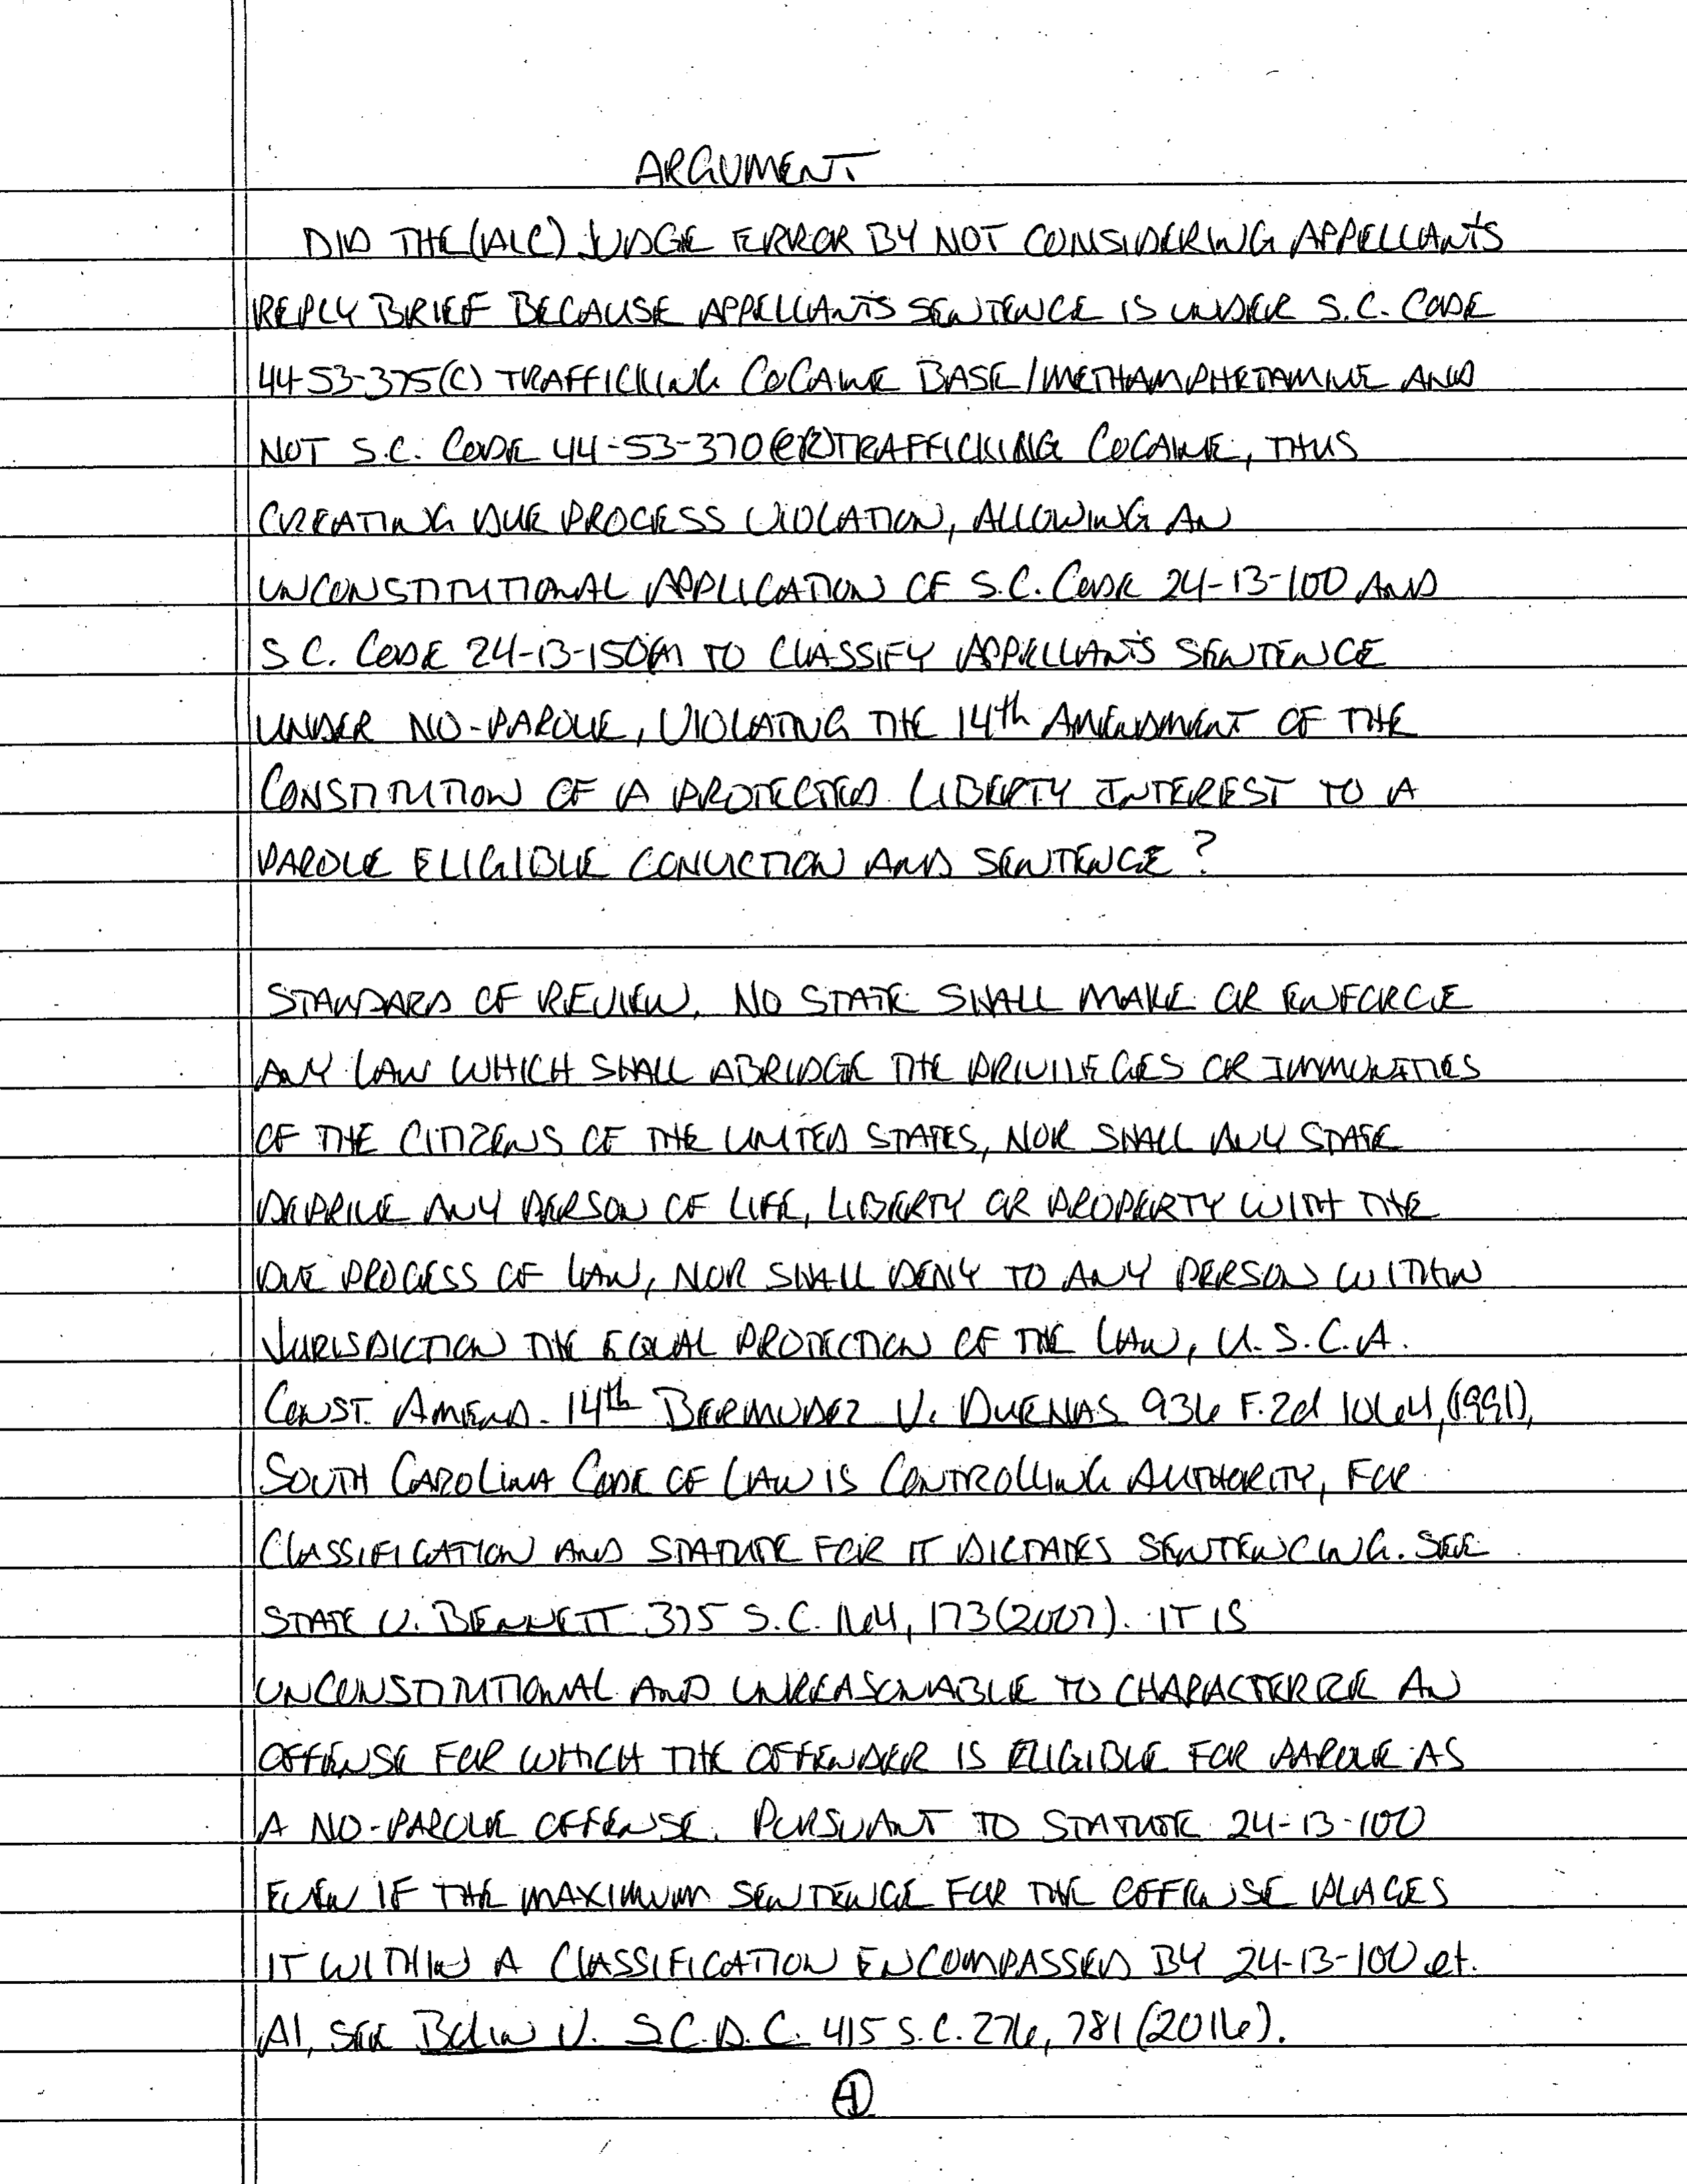 ARGUMENT.
DID THE (ALC) JUDGE ERROR BY NOT CONSIDERING APPELLANTS
REPLY BRIEF BECAUSE APPELLANTS SENTENCE IS UNDER S.C. CODE
44-53-375(C) TRAFFICKING COCAINE BASE/METHAMPHETAMINE AND
NOT S.C. CODE 44-53-370 TRAFFICKING COCAINE, THUS
CREATING DUE PROCESS VIOLATION, ALLOWING AN
UNCONSTITUTIONAL APPLICATION OF S.C. CODE 24-13-100 AND
S C. CODE 24-13-150(A) TO CLASSIFY APPELLANTS SENTENCE
UNDER NO-PAROLE, VIOLATING THE 14th AMENDMENT OF THE
CONSTITUTION OF A PROTECTED LIBERTY INTEREST TO A
PAROLE ELIGIBLE CONVICTION AND SENTENCE?
STANDARD OF REVIEW. NO STATE SHALL MAKE OR ENFORCE
ANY LAW WHICH SHALL ABRIDGE THE PRIVILEGES OR IMMUNITIES
OF THE CITIZENS OF THE UNITED STATES, NOR SHALL ANY STATE
DEPRIVE ANY PERSON OF LIFE, LIBERTY OR PROPERTY WITH THE
DUE PROCESS OF LAW, NOR SHALL DENY TO ANY PERSON WITHIN
JURISDICTION THE EQUAL PROTECTION OF THE LAW, U.S.C.A.
CONST. AMEND. 14th BERMUDEZ V. DUENAS 936 F.2d 1064, (1991),
SOUTH CAROLINA CODE OF LAW IS CONTROLLING AUTHORITY, FOR
CLASSIFICATION AND STATUTE FOR IT DICTATES SENTENCING. SEE
STATE V. BENNETT 375 S.C. 164, 173 (2007). IT IS
UNCONSTITUTIONAL AND UNREASONABLE TO CHARACTERIZE AN
OFFENSE FOR WHICH THE OFFENDER IS ELIGIBLE FOR PAROLE AS
A NO-PAROLE OFFENSE. PURSUANT TO STATUTE 24-13-100
EVEN IF THE MAXIMUM SENTENCE FOR THE OFFENSE PLACES
IT WITHIN A CLASSIFICATION ENCOMPASSED BY 24-13-100 et.
Al, SEE Bolin V. S.C.D.C. 415 S.C. 276, 781 (2016).
4